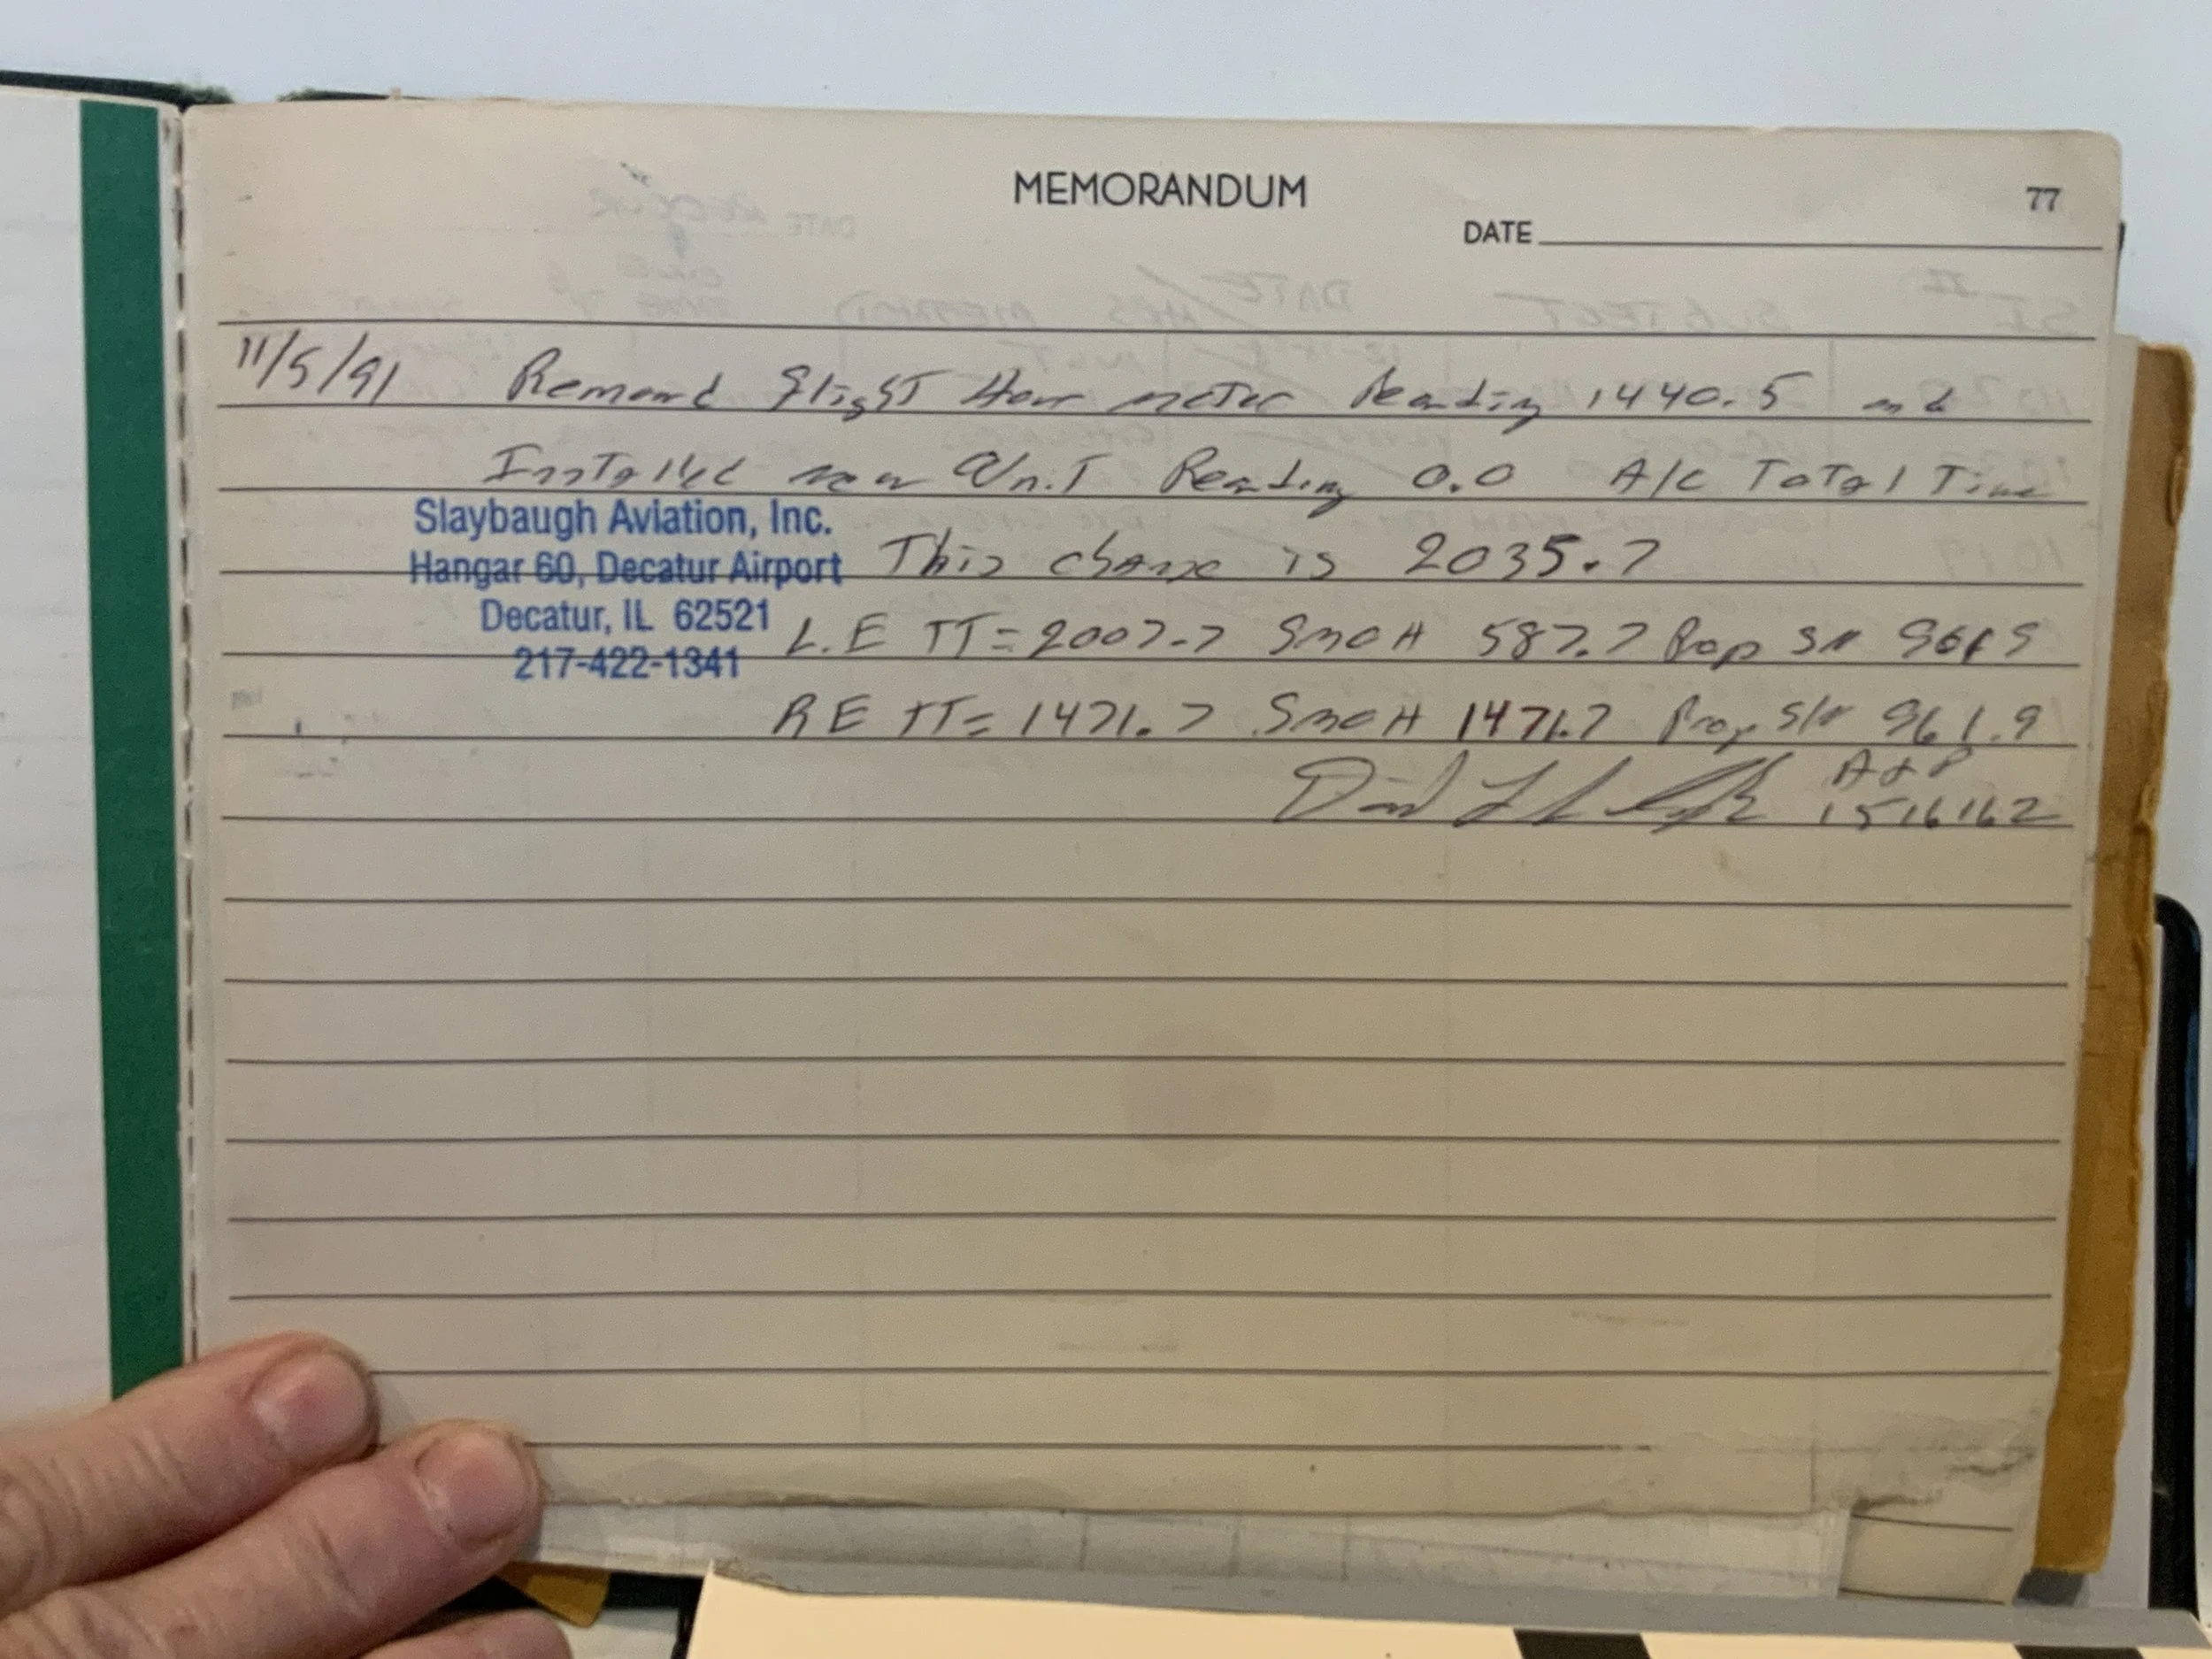 MEMORANDUM
77
DATE
11/5/91 Removed Flight Hour meter Reading 1440.5 and
Installed new Unit Reading 0.0 A/C Total Time
Slaybaugh Aviation, Inc.
Hangar 60, Decatur Airport
Decatur, IL 62521
217-422-1341
This change is 2035.7
L.E TT = 2007.7 SMOH 587.7 Prop SN
RE TT = 1471.7 SMOH 1471.7 Prop S/N 961.9
A&P
1516162
DATE
SUBJECT
DATE